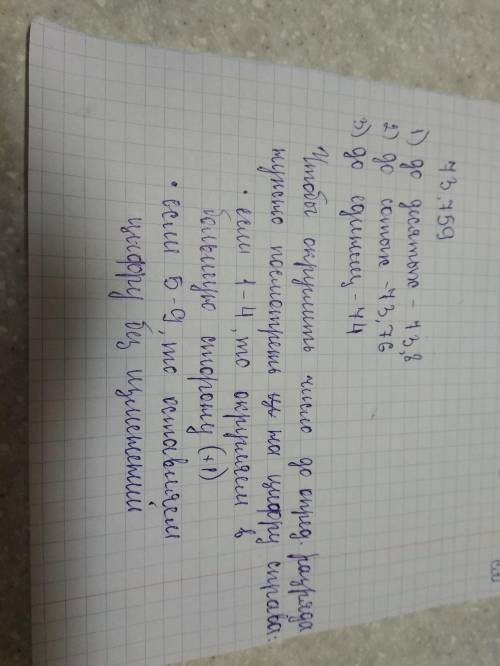 43,759
1) до десятых - 43,8
2) до сотых - 43,76
3) до единиц - 44
Чтобы округлить число до опред. разряда
нужно посмотреть на цифру справа:
• если 1-4, то округляем в
большую сторону (+1)
• если 5-9, то оставляем
цифру без изменений